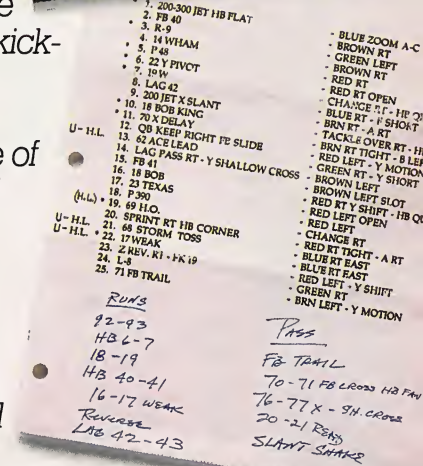 kick-
e of
1. 200-300 JET HB FLAT
2. FB 40
3. R-9
4. 14 WHAM
5. P 48
6. 22 Y PIVOT
7. 19 W
8. LAG 42
9. 200 JET X SLANT
10. 18 BOB KING
11. 70 X DELAY
U - H.L. 12. QB KEEP RIGHT FE SLIDE
13. 62 ACE LEAD
14. LAG PASS RT - Y SHALLOW CROSS
15. FB 41
16. 18 BOB
17. 23 TEXAS
18. P 390
(H.L.) • 19. 69 H.O.
20. SPRINT RT HB CORNER
U - H.L. 21. 68 STORM TOSS
U - H.L. • 22. 17 WEAK
23. Z REV. RT - FK 19
24. L-8
25. 71 FB TRAIL
- BLUE ZOOM A-C
- BROWN RT
- GREEN LEFT
- BROWN RT
- RED RT
- RED RT OPEN
- CHANGE RT - HB
- BLUE RT - F SHORT
- BRN RT - A RT
- TACKLE OVER RT - H
- BRN RT TIGHT - B LEF
- RED LEFT - Y MOTION
- GREEN RT - Y SHORT
- BROWN LEFT
- BROWN LEFT SLOT
- RED RT Y SHIFT - HB QU
- RED LEFT OPEN
- RED LEFT
- CHANGE RT
- RED RT TIGHT - A RT
- BLUE RT EAST
- BLUE RT EAST
- RED LEFT - Y SHIFT
- GREEN RT
- BRN LEFT - Y MOTION
RUNS
92-93
HB 6-7
18-19
HB 40-41
16-17 WEAK
REVERSE
LAG 42-43
PASS
FB TRAIL
70-71 FB CROSS HB FAN
76-77 X - SH. CROSS
20-21 READ
SLANT SHAKE